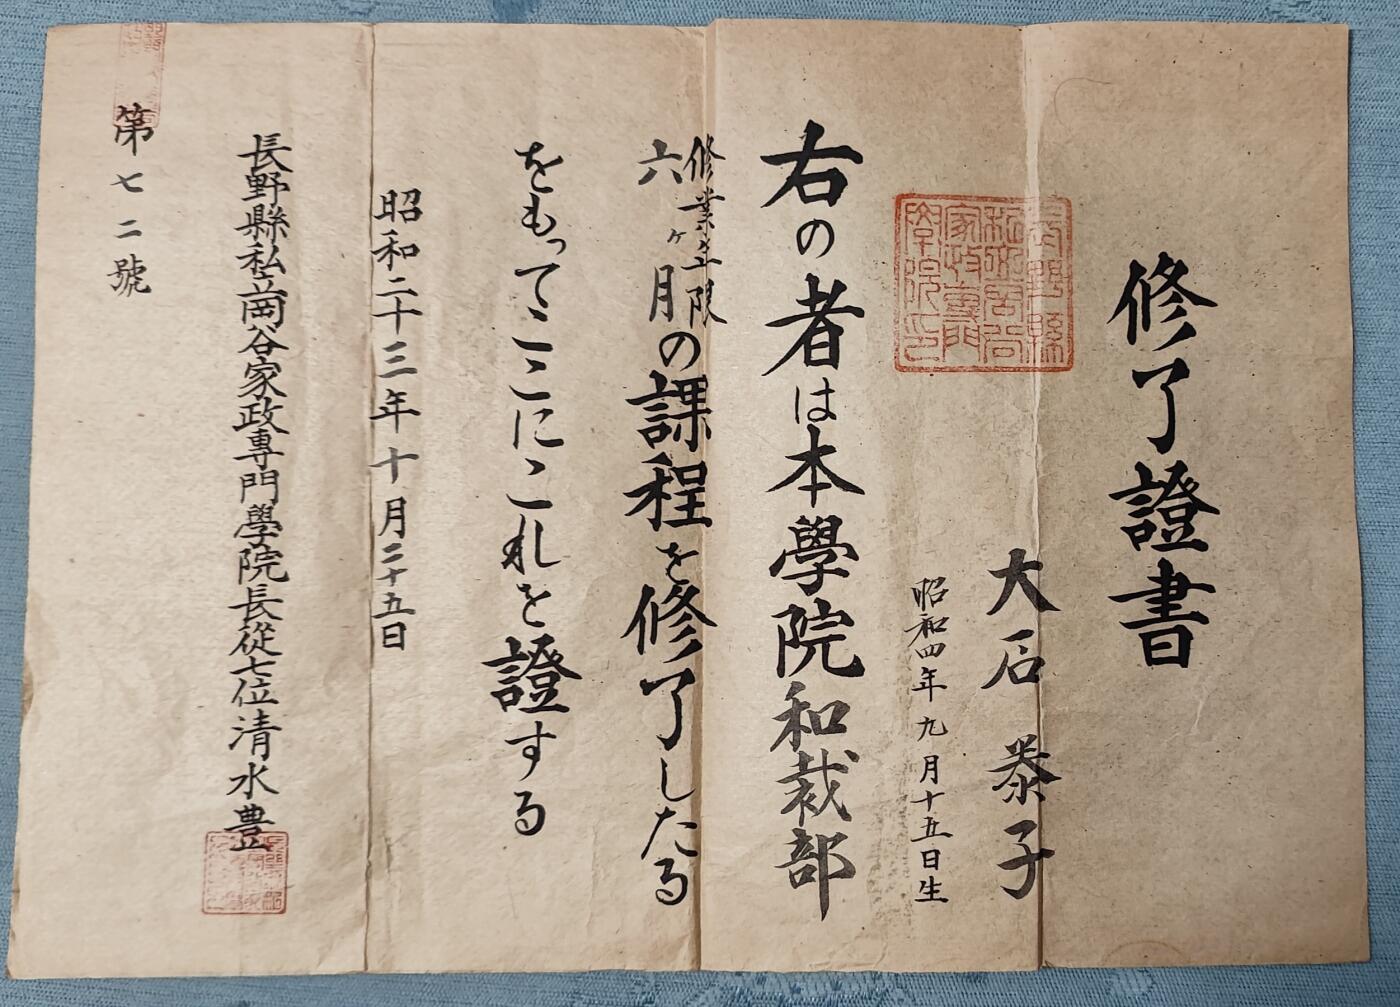 修了證書
長野縣
私立岡谷
家政專門
學院印
大石泰子
昭和四年九月十五日生
右の者は本學院和裁部
修業年限
六ヶ月の課程を修了したる
をもってここにこれを證する
昭和二十三年十月二十五日
長野縣私立岡谷家政專門學院長從七位清水豊
第七二號